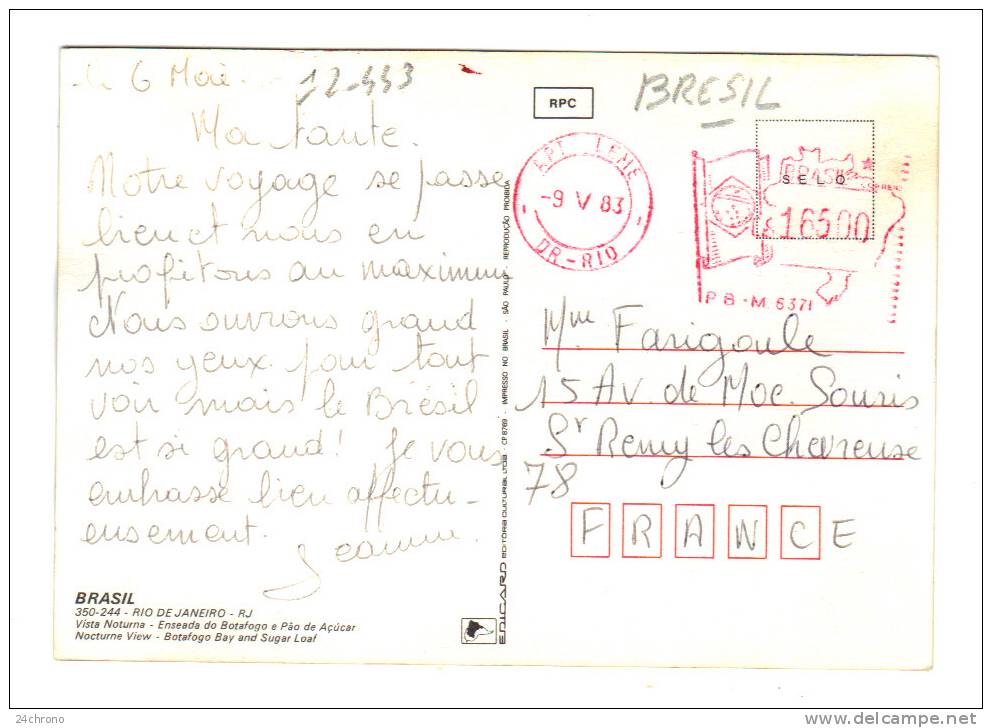 le 6 Mai
12-443
Ma tante.
Notre voyage se passe
bien et nous en
profitons au maximum
Nous ouvrons grand
nos yeux pour tout
voir mais le Brésil
est si grand! Je vous
embrasse bien affectu-
eusement.
Jeanne.
BRASIL
350-244 - RIO DE JANEIRO - RJ
Vista Noturna - Enseada do Botafogo e Pão de Açúcar
Nocturne View - Botafogo Bay and Sugar Loaf
EDICARD EDITORA CULTURAL LTDA. CP 8769 - IMPRESSO NO BRASIL - SÃO PAULO - REPRODUÇÃO PROIBIDA
RPC
BRESIL
LEME
-9 V 83
DR-RIO
BRASIL
SELO
16500
PB-M 6371
Mme Farigoule
15 Av. de Moc. Souris
St Remy les Chevreuse
78
FRANCE
24chrono
delcampe.net